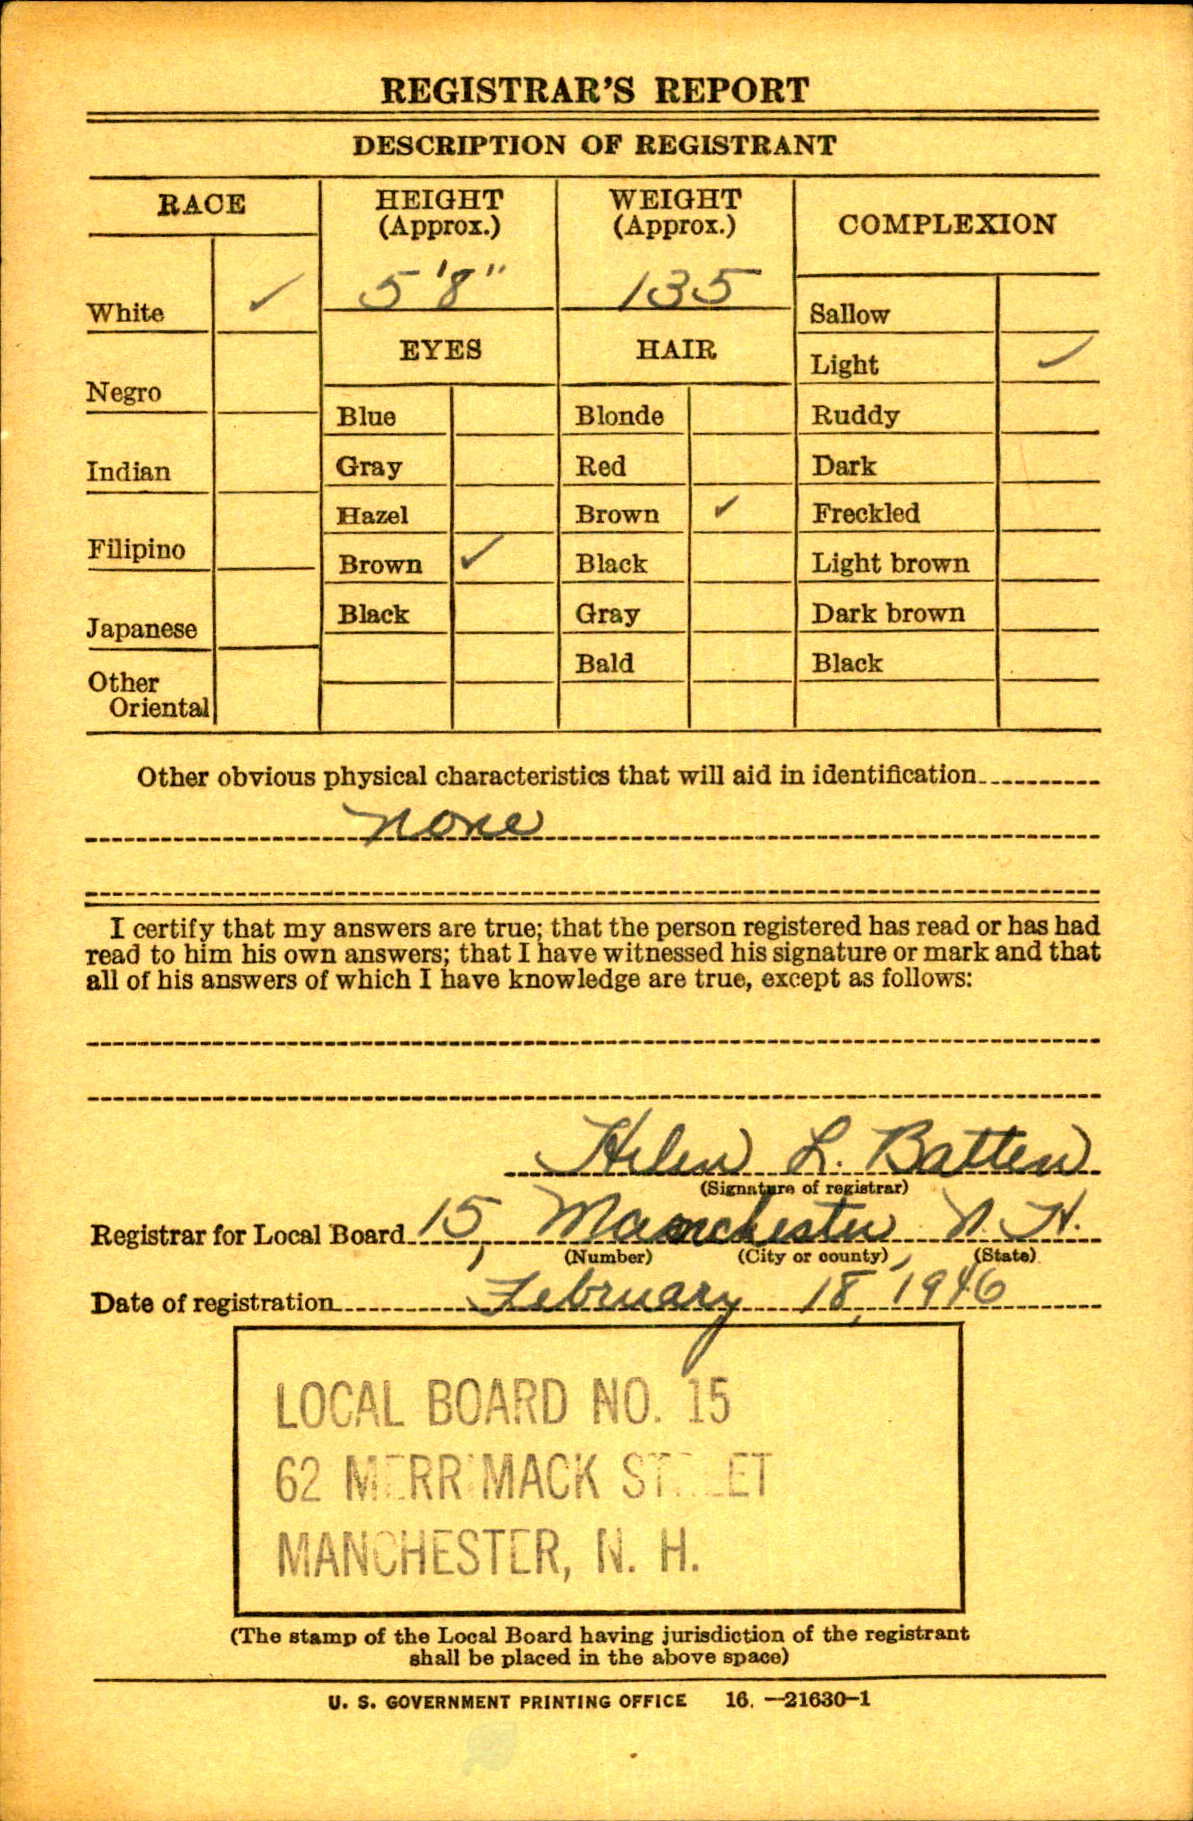 REGISTRAR'S REPORT
DESCRIPTION OF REGISTRANT
RACE
HEIGHT
(Approx.)
WEIGHT
(Approx.)
COMPLEXION
White ✓
5'8"
135
Sallow
EYES
HAIR
Light ✓
Negro
Blue
Blonde
Ruddy
Indian
Gray
Red
Dark
Hazel
Brown ✓
Freckled
Filipino
Brown ✓
Black
Light brown
Japanese
Black
Gray
Dark brown
Bald
Black
Other
Oriental
Other obvious physical characteristics that will aid in identification
none
I certify that my answers are true; that the person registered has read or has had
read to him his own answers; that I have witnessed his signature or mark and that
all of his answers of which I have knowledge are true, except as follows:
Helen L. Batten
(Signature of registrar)
Registrar for Local Board 15, Manchester, N. H.
(Number) (City or county) (State)
Date of registration February 18, 1946
LOCAL BOARD NO. 15
62 MERRIMACK STREET
MANCHESTER, N. H.
(The stamp of the Local Board having jurisdiction of the registrant
shall be placed in the above space)
U. S. GOVERNMENT PRINTING OFFICE 16.—21630-1